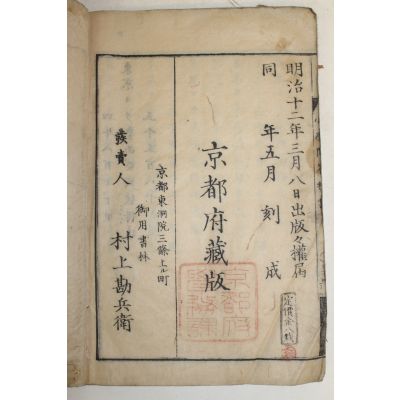 明治十二年三月八日出版々權届
同 年五月 刻 成
京都府藏版
京都東洞院三條上ル町
御用書林
發賣人 村上勘兵衛
定價金八錢